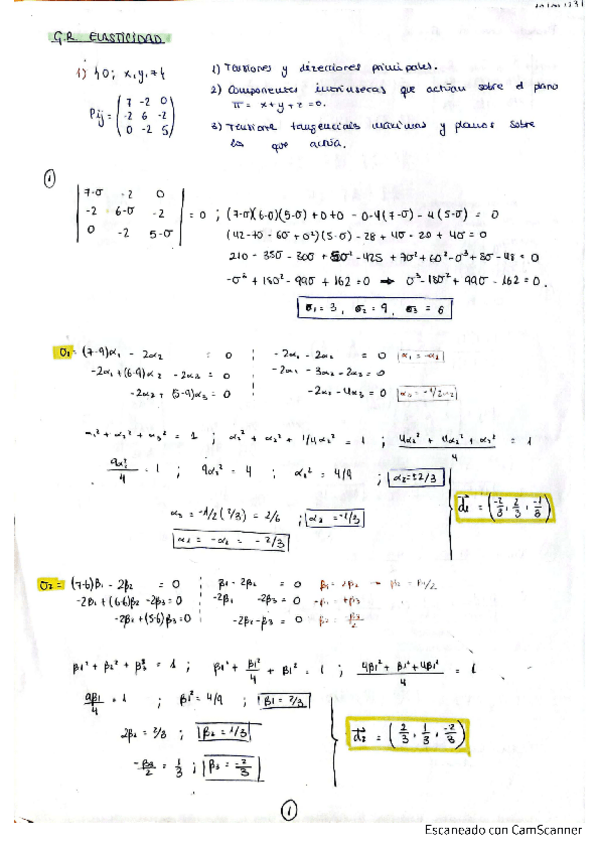 G.R. ELASTICIDAD
1) {0; x, y, z}
Pij = ( 7 -2 0
-2 6 -2
0 -2 5 )
1) Tensiones y direcciones principales.
2) Componentes intrínsecas que actúan sobre el plano
π = x+y+z=0.
3) Tensiones tangenciales máximas y planos sobre
los que actúa.
①
| 7-σ -2 0
-2 6-σ -2
0 -2 5-σ | = 0 ; (7-σ)(6-σ)(5-σ) + 0 + 0 - 0 - 4(7-σ) - 4(5-σ) = 0
(42 - 7σ - 6σ + σ²)(5-σ) - 28 + 4σ - 20 + 4σ = 0
-σ³ + 18σ² - 99σ + 162 = 0 ⇒ σ³ - 18σ² + 99σ - 162 = 0.
σ1 = 3, σ2 = 9, σ3 = 6
σ1 = (7-9)α1 - 2α2 = 0 ; -2α1 - 2α2 = 0 α1 = -α2
-2α1 + (6-9)α2 - 2α3 = 0 ; -2α1 - 3α2 - 2α3 = 0
-2α2 + (5-9)α3 = 0 ; -2α2 - 4α3 = 0 α3 = -1/2α2
α1² + α2² + α3² = 1 ; α2² + α2² + 1/4α2² = 1 ; (4α2² + 4α2² + α2²)/4 = 1
9α2²/4 = 1 ; 9α2² = 4 ; α2² = 4/9 ; α2 = ±2/3
α3 = -1/2(2/3) = 2/6 ; α3 = -1/3
α1 = -α2 = -2/3
d1 = (-2/3, 2/3, -1/3)
σ2 = (7-6)β1 - 2β2 = 0 ; β1 - 2β2 = 0 β1 = 2β2 → β2 = β1/2
-2β1 + (6-6)β2 - 2β3 = 0 ; -2β1 - 2β3 = 0
-2β2 + (5-6)β3 = 0 ; -2β2 - β3 = 0
β1² + β2² + β3² = 1 ; β1² + β1²/4 + β1² = 1 ; (4β1² + β1² + 4β1²)/4 = 1
9β1/4 = 1 ; β1² = 4/9 ; β1 = 2/3
2β2 = 2/3 ; β2 = 1/3
-β3/2 = 1/3 ; β3 = -2/3
d2 = (2/3, 1/3, -2/3)
①
Escaneado con CamScanner